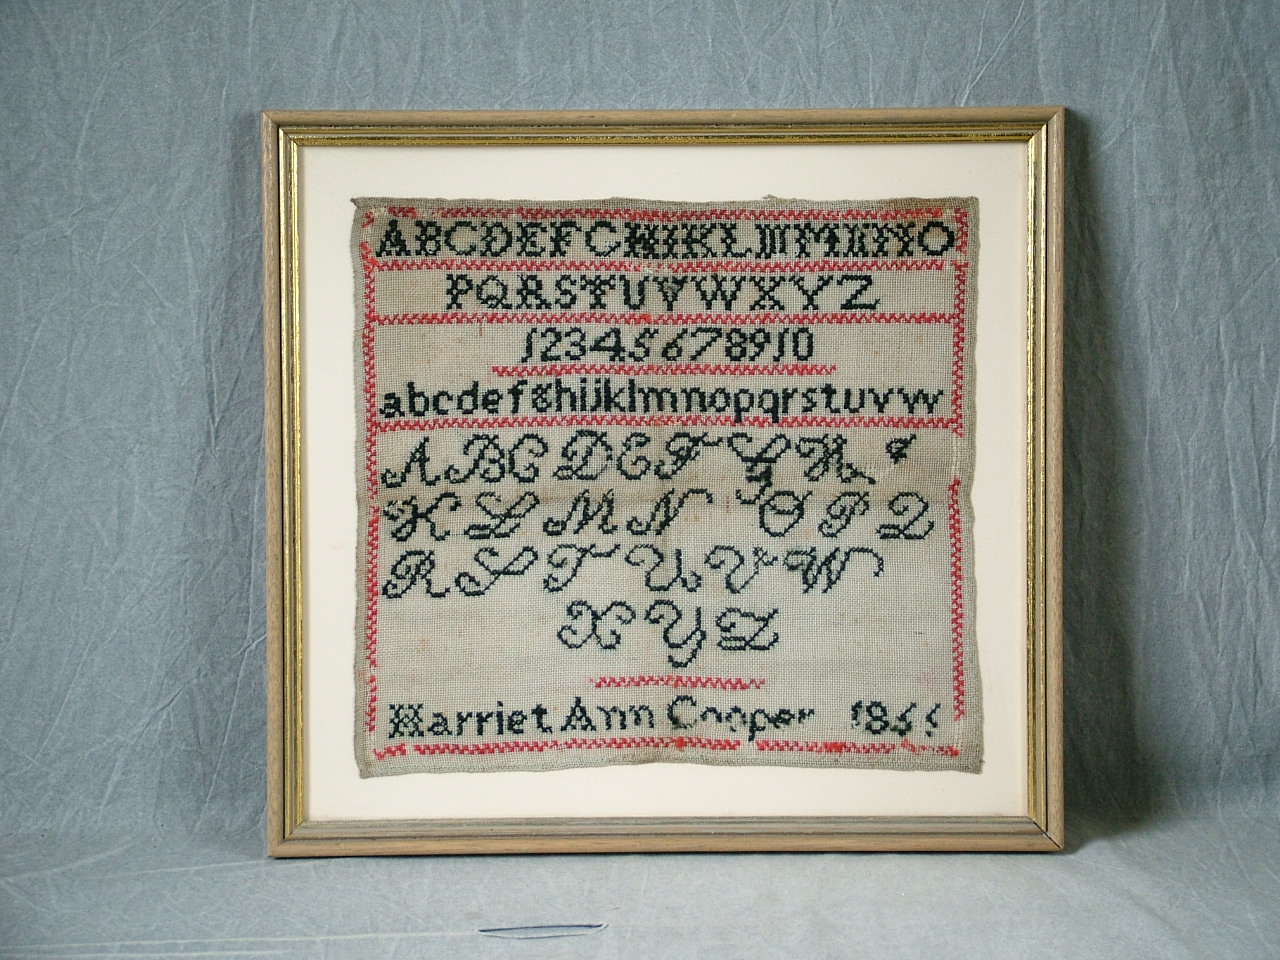 ABCDEFGHIKLMNO
PQRSTUVWXYZ
12345678910
abcdefghijklmnopqrstuvw
ABCDEFGH
KLMNOPQ
RSTUVW
XYZ
Harriet Ann Cooper